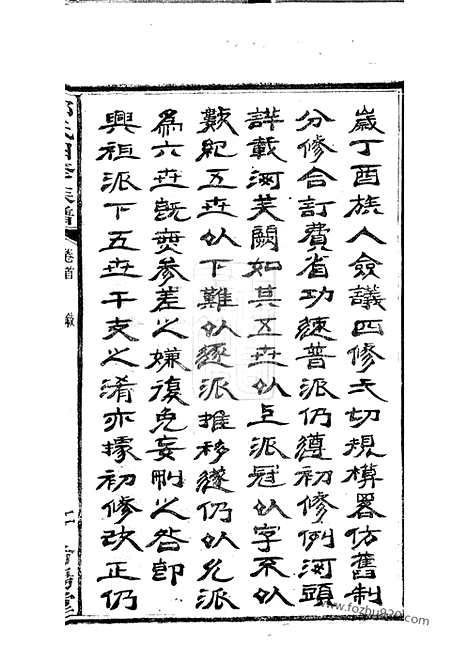 歲丁酉族人僉議四修一切規模畧仿舊制
分修合訂費省功速普派仍遵初修例河頭
詳載河芙闕如其五世以上派冠以字不以
數紀五世以下難以逐派推移遂仍以允派
為六世既無參差之嫌復免妄刪之咎即
興祖派下五世干支之淆亦據初修改正仍
四修族譜
卷首
www.fozhu920.com